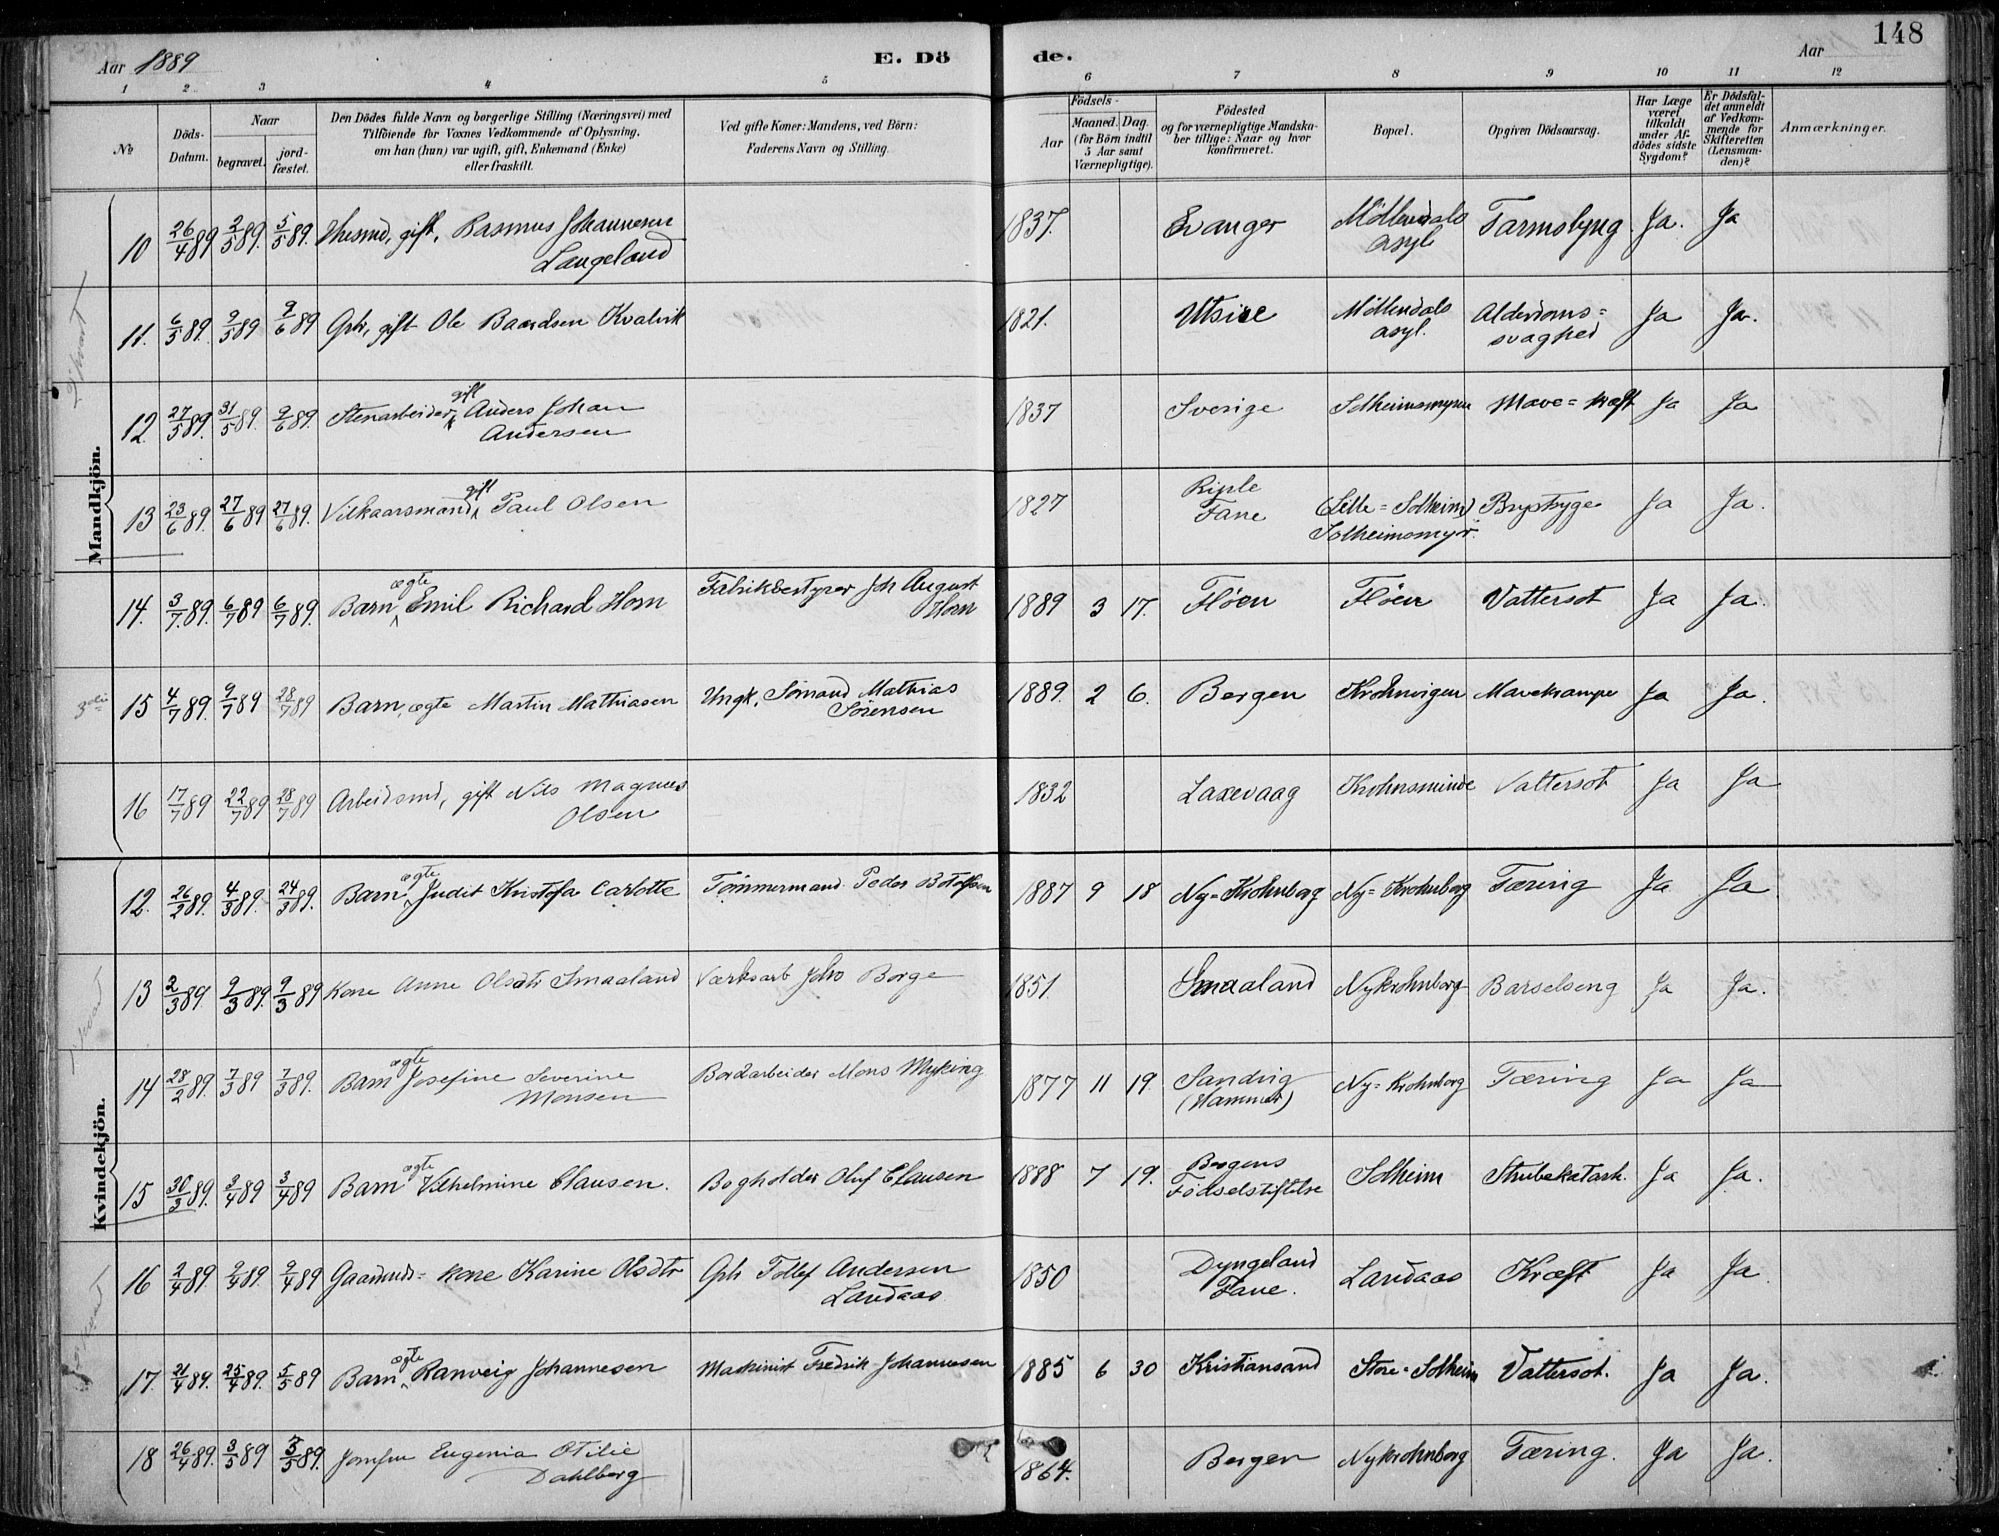 Aar 1889 E. Dö de. Aar 148
1 2 3 4 5 6 7 8 9 10 11 12
№
Döds-Datum.
Naar
begravet.
jordfæstet.
Den Dödes fulde Navn og borgerlige Stilling (Næringsvei) med
Tilföiende for Voxnes Vedkommende af Oplysning,
om han (hun) var ugift, gift, Enkemand (Enke)
eller fraskilt.
Ved gifte Koner: Mandens, ved Börn:
Faderens Navn og Stilling.
Födsels-
Aar
Maaned. Dag.
(for Börn indtil
5 Aar samt
Værnepligtige).
Födested
og for værnepligtige Mandskaber tillige: Naar og hvor
konfirmeret.
Bopæl.
Opgiven Dödsaarsag.
Har Læge
været
tilkaldt
under Afdödes sidste
Sygdom?
Er Dödsfaldet anmeldt
af Vedkommende for
Skifteretten
(Lensmanden)?
Anmærkninger.
Mandkjön.
10 26/4 89 2/5 89. 5/5 89. Husmd, gift, Rasmus Johannesen Langeland 1837. Evanger Möllendals asyl Tarmslyng Ja. Ja
11. 6/5 89. 9/5 89 9/6 89 Gbr, gift Ole Baardsen Kvalvik 1821. Utsire Möllendals asyl. Alderdoms=svaghed Ja Ja.
12. 27/5 89. 31/5 89. 9/6 89. Stenarbeider, gift Anders Johan Andersen 1837 Sverige Solheimsmyren Mave=kræft Ja Ja
13 23/6 89. 27/6 89 27/6 89. Vilkaarsmand gift Paul Olsen 1827 Riple Fane (Lille=Solheim) Solheimsmyr. Brystsyge Ja Ja.
14. 3/7. 89. 6/7 89 6/7 89. Barn ægte Emil Richard Horn Fabrikbestyrer Joh August Horn 1889 3 17. Flöen Flöen Vattersot Ja Ja.
15 4/7 89. 9/7 89 28/7 89 Barn, ægte Martin Mathiasen Ungk. Sömand Mathias Sörensen 1889. 2 6. Bergen Krohnvigen Mavekrampe Ja Ja.
16 17/7 89 22/7 89 28/7 89 Arbeidsmd, gift Nils Magnus Olsen 1832 Laxevaag Krohnsminde Vattersot Ja Ja
Kvindekjön.
12. 26/2 89. 4/3 89. 24/3 89. Barn ægte Judit Kristofa Carlotte Tömmermand Peder Botolfsen 1887 9 18 Ny=Krohnborg Ny=Krohnborg Tæring Ja Ja.
13 2/3 89. 9/3 89. 9/3 89 Kone Anne Olsdtr Smaaland Værksarb Joh Borge 1851. Smaaland Nykrohnborg Barselseng Ja Ja.
14 28/2 89. 7/3 89 7/3 89. Barn ægte Josefine Severine Monsen Bordarbeider Mons Myking 1877 11 19. Sandvig (Hammer) Ny=Krohnborg Tæring Ja Ja
15 30/3 89. 3/4 89 3/4 89 Barn ægte Vilhelmine Clausen. Bogholder Oluf Clausen 1888 7 19. Bergens Födselstiftelse Solheim Strubekatarh. Ja Ja.
16 2/4 89. 9/4 89. 9/4 89 Gaardmds=kone Karine Olsdtr Gbr Tollef Andersen Landaas 1850 Dyngeland Fane. Landaas Kræft Ja Ja.
17. 21/4 89. 25/4 89. 5/5 89 Barn ægte Ranveig Johannesen Maskinist Fredrik Johannesen 1885 6 30 Kristiansand Store=Solheim Vattersot. Ja Ja.
18 26/4 89. 3/5 89 89. Jomfru Eugenia Otilie Dahlberg 1864. Bergen Nykrohnborg Tæring. Ja Ja.